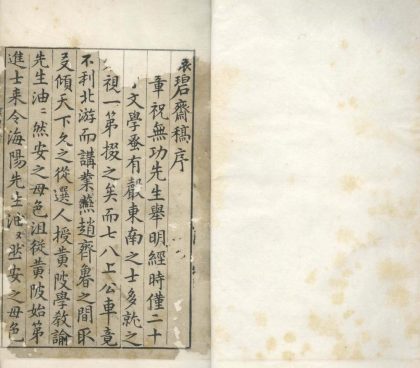 碧齋稿序
章祝無功先生舉明經時僅二十
文學蚤有聲東南之士多就之
視一第掇之矣而七八上公車竟
不利北游而講業燕趙齊魯之間取
友傾天下久之從選人授黃陂學敎諭
先生油〻然安之毋色沮從黃陂始第
進士来令海陽先生油〻然安之毋色